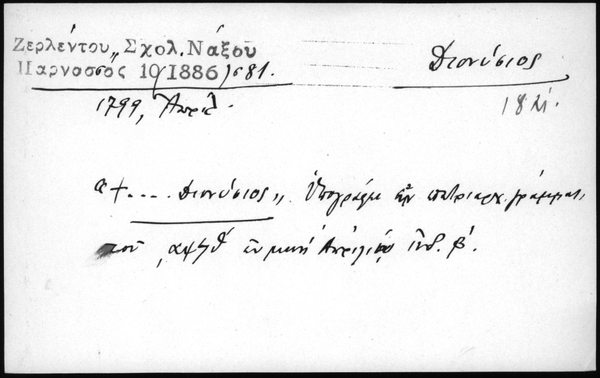 Ζερλέντου „Σχολ. Νάξου
Παρνασσός 10/1886/σ81.
Διονύσιος
1821.
1799, Ἀπρίλ.
"+.... Διονύσιος". Ὑπογράφει ἐν πατριαρχ. γράμματι
τοῦ ͵αψϟθ ἐν μηνὶ Ἀπριλίῳ ἰνδ. β΄.